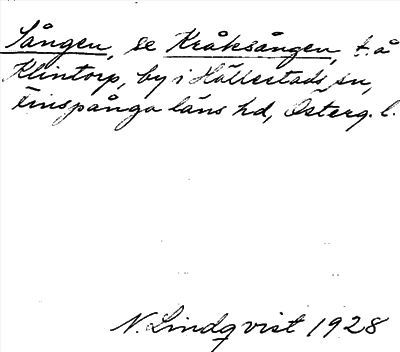 Sången, se Kråksången, t. å
Klintorp, by i Hällestads sn,
Finspånga läns hd, Österg. l.
N. Lindqvist 1928